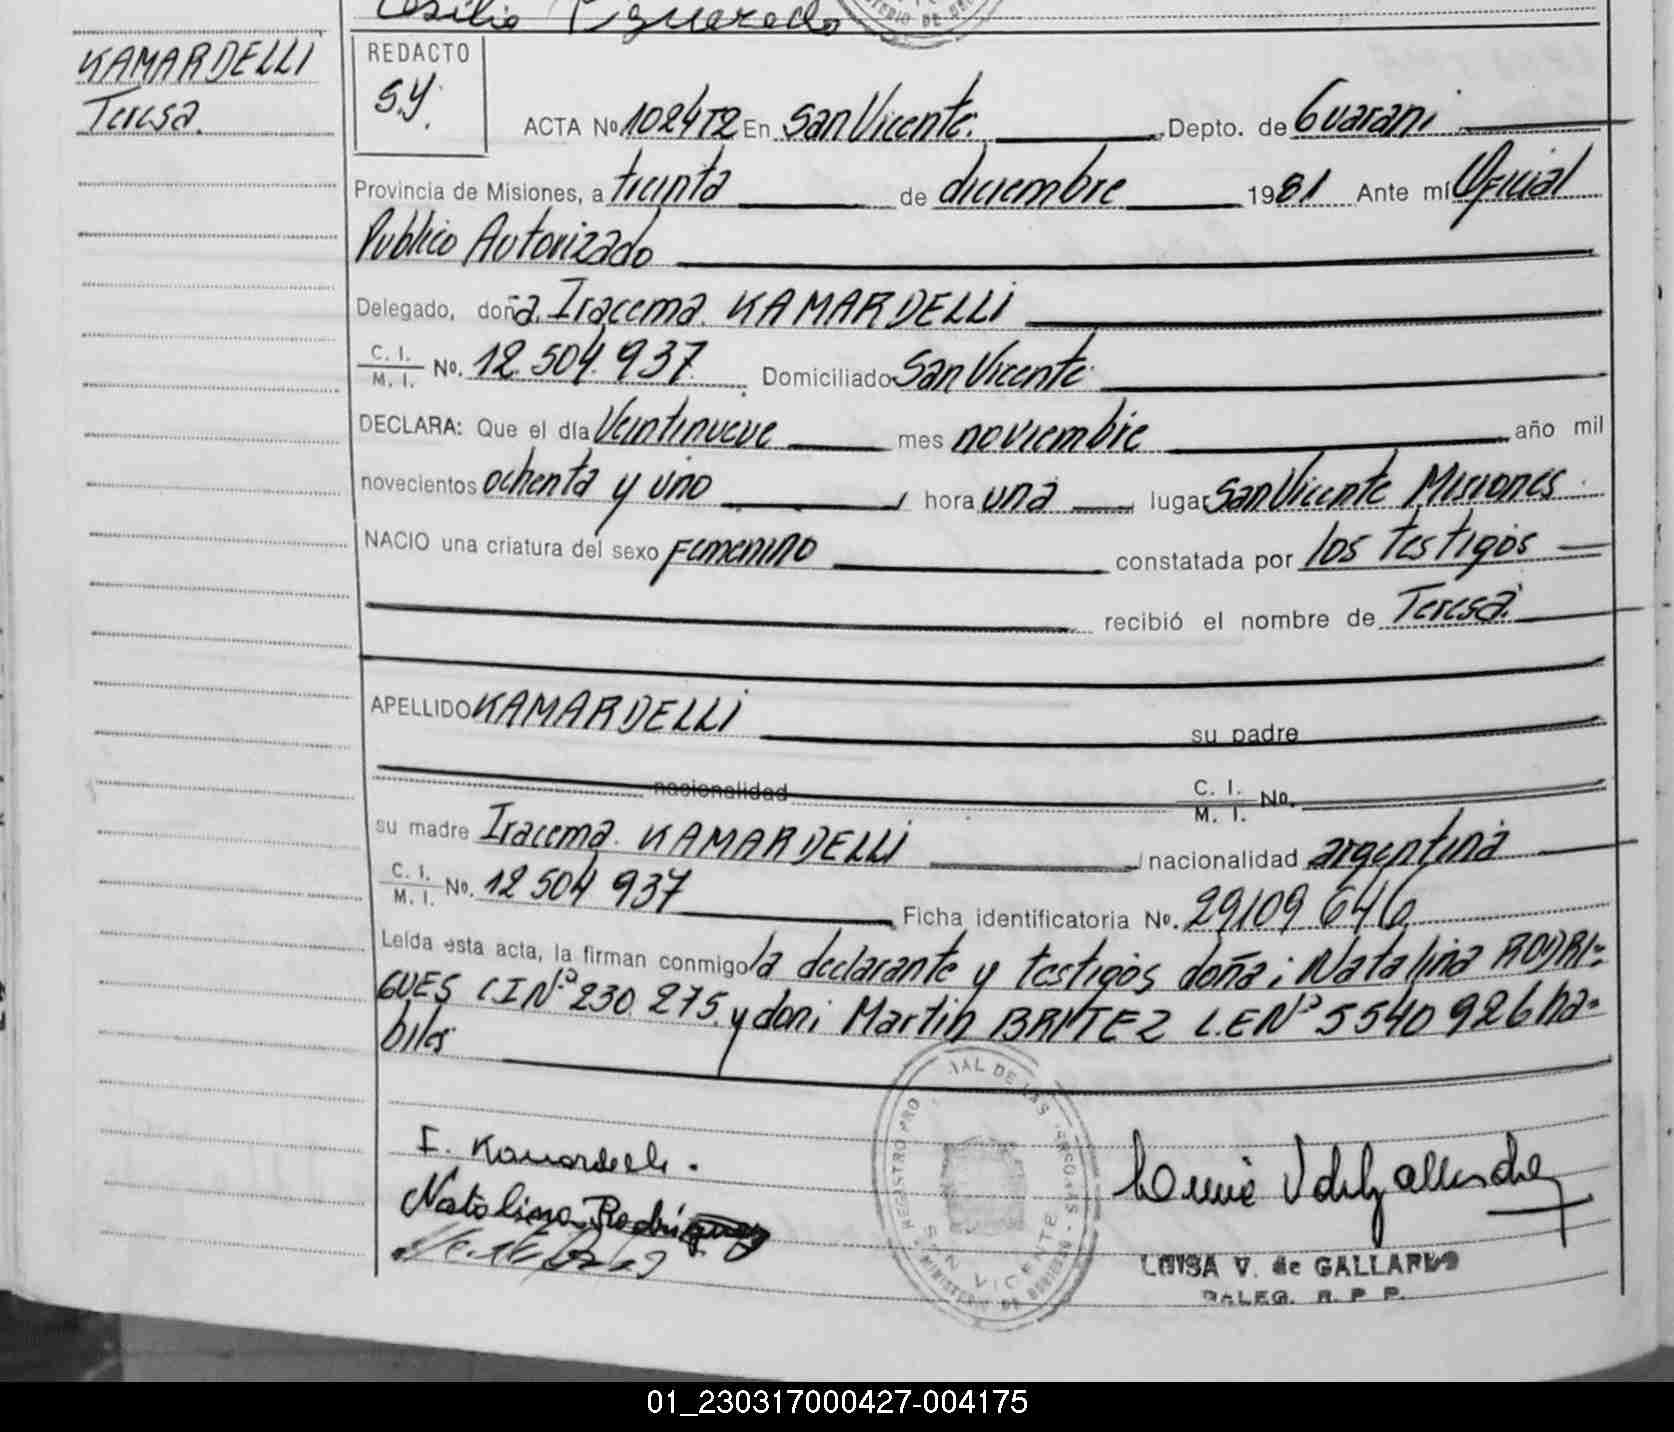 Cesilio Figueredo
KAMARDELLI
Teresa.
REDACTO
S.Y.
ACTA No 1024T2 En San Vicente. Depto. de Guarani
Provincia de Misiones, a treinta de diciembre 1981 Ante mí Oficial
Publico Autorizado
Delegado, doña. Iracema. KAMARDELLI
C. I.
M. I. No. 12.504.937 Domiciliado San Vicente
DECLARA: Que el día Veintinueve mes noviembre año mil
novecientos ochenta y uno, hora una, lugar San Vicente Misiones.
NACIO una criatura del sexo Femenino constatada por los testigos
recibió el nombre de Teresa.
APELLIDO KAMARDELLI su padre
nacionalidad C. I.
M. I. No.
su madre Iracema. KAMARDELLI, nacionalidad argentina
C. I.
M. I. No. 12 504 937 Ficha identificatoria No. 29109 646
Leída esta acta, la firman conmigo la declarante y testigos doña; Natalina RODRI=
GUES CI Nº 230.275. y don; Martin BRITEZ L.E Nº 5540926 ha=
biles
I. Kamardelli.
Natalina Rodriguez
REGISTRO PRO IAL DE LAS PERSONAS
SAN VICENTE
MINISTERIO DE GOBIERNO
LUISA V. de GALLARDO
DALEG. R. P. P.
01_230317000427-004175